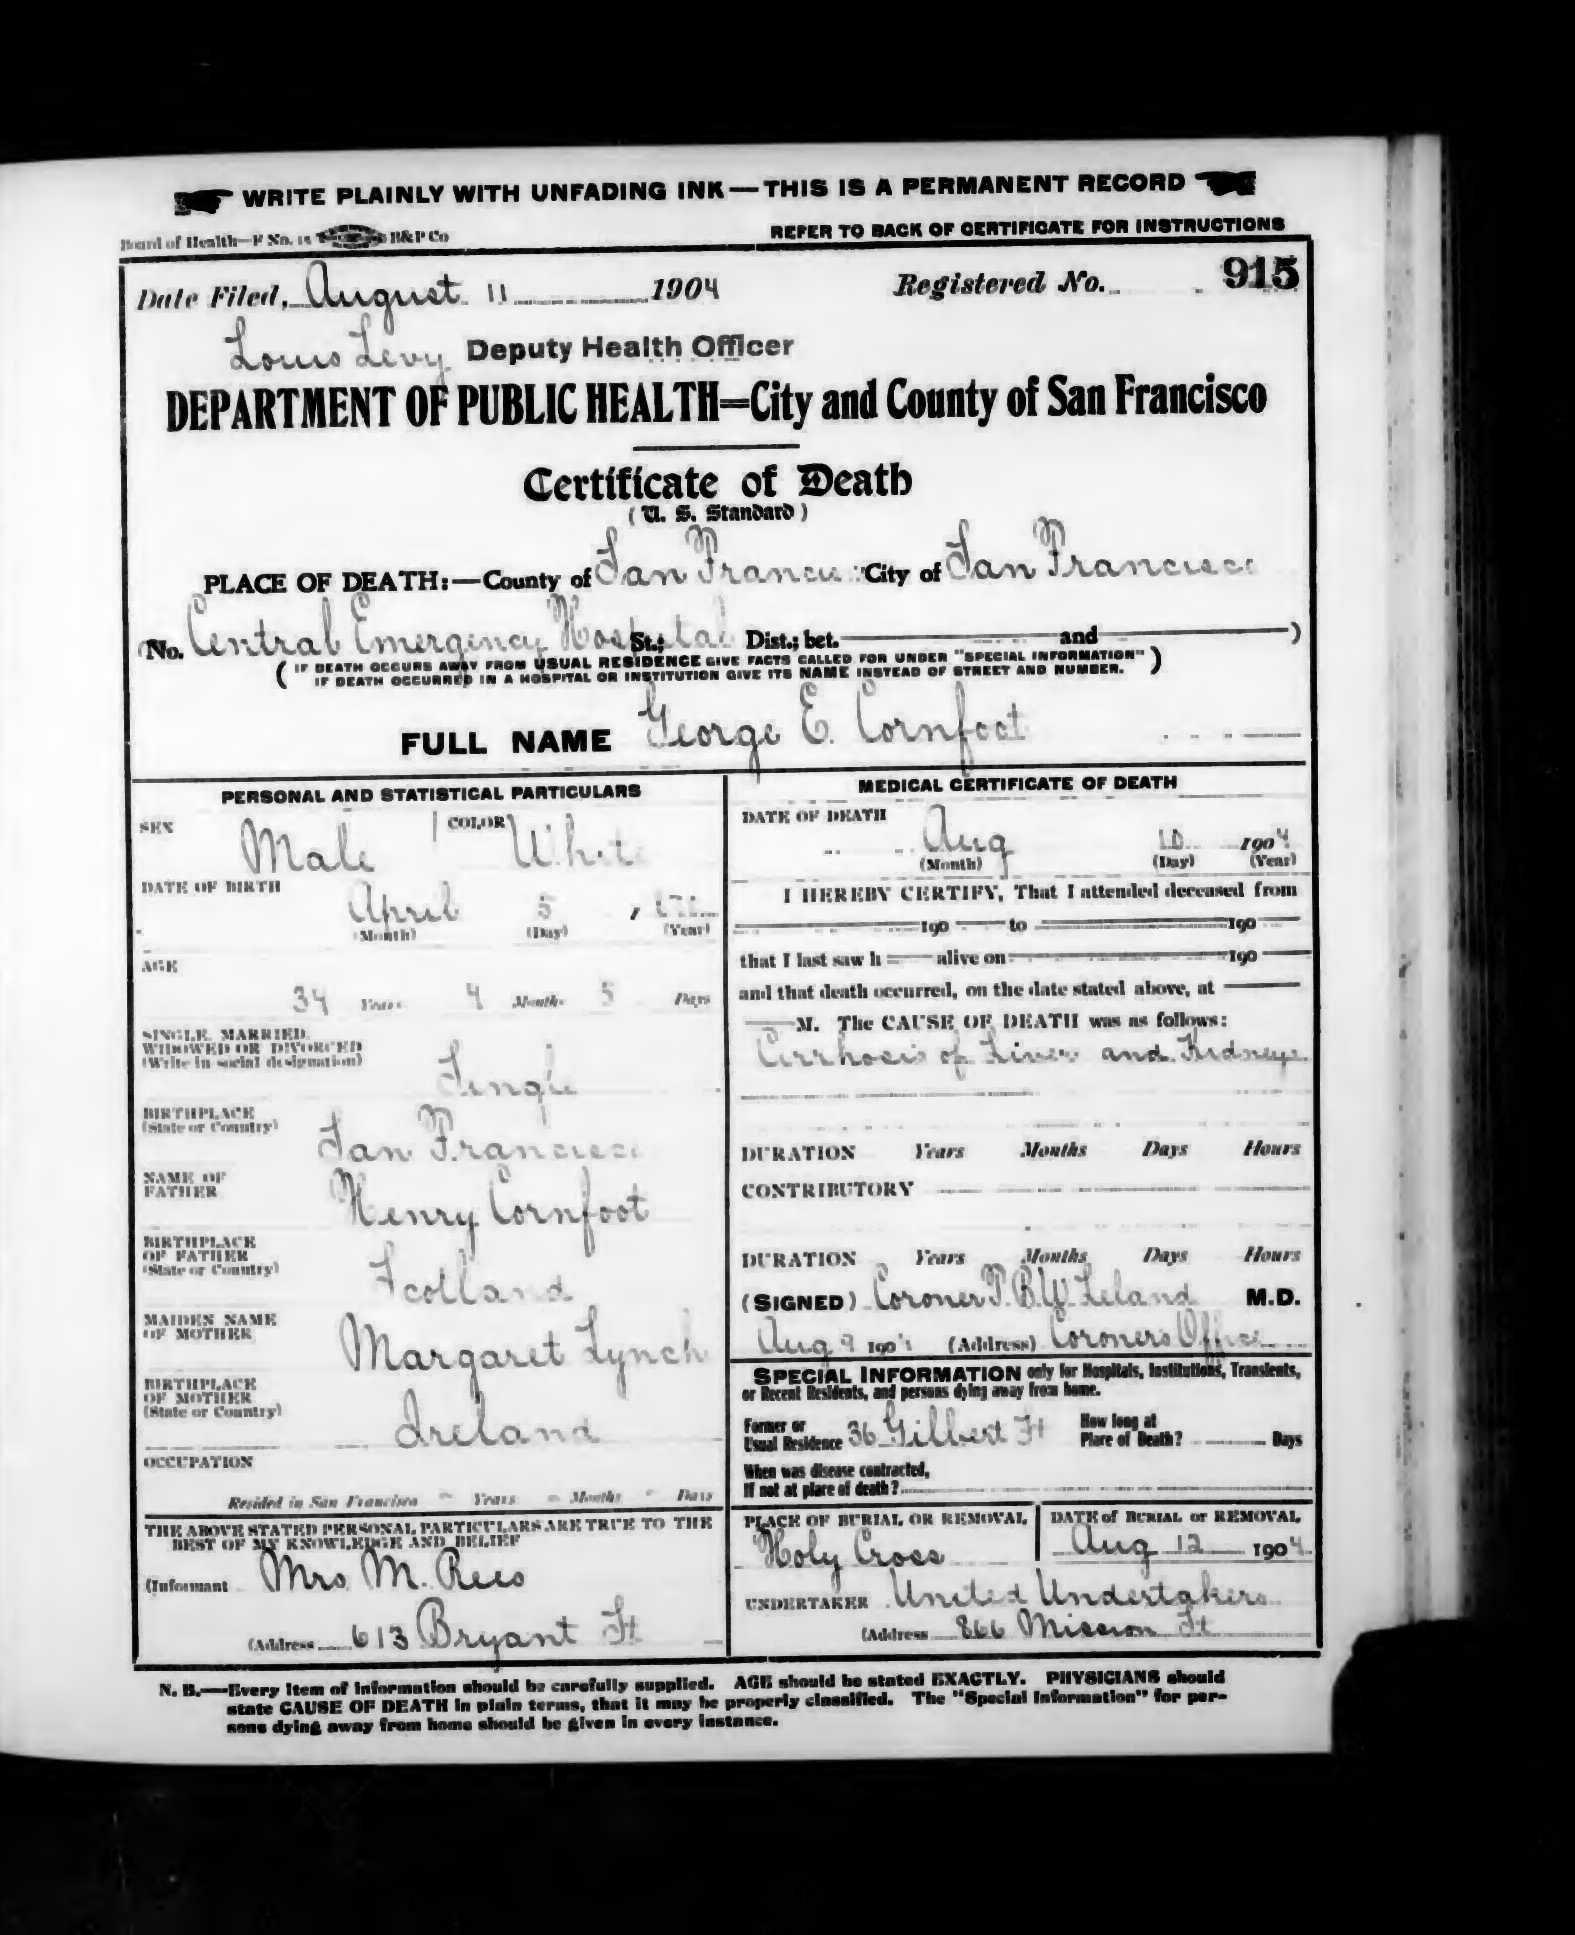 WRITE PLAINLY WITH UNFADING INK — THIS IS A PERMANENT RECORD
Board of Health—F No. 15 B&P Co REFER TO BACK OF CERTIFICATE FOR INSTRUCTIONS
Date Filed, August 11 1904 Registered No. 915
Louis Levy Deputy Health Officer
DEPARTMENT OF PUBLIC HEALTH=City and County of San Francisco
Certificate of Death
(U. S. Standard)
PLACE OF DEATH:—County of San Francis City of San Francisco
(No. Central Emergency Hospital St.; Dist.; bet. and )
( IF DEATH OCCURS AWAY FROM USUAL RESIDENCE GIVE FACTS CALLED FOR UNDER "SPECIAL INFORMATION" )
IF DEATH OCCURRED IN A HOSPITAL OR INSTITUTION GIVE ITS NAME INSTEAD OF STREET AND NUMBER.
FULL NAME George E. Cornfoot
PERSONAL AND STATISTICAL PARTICULARS
SEX Male COLOR White
DATE OF BIRTH
April 5
(Month) (Day) (Year)
AGE
34 Years 4 Months 5 Days
SINGLE, MARRIED,
WIDOWED OR DIVORCED
(Write in social designation) Single
BIRTHPLACE
(State or Country) San Francisco
NAME OF
FATHER Henry Cornfoot
BIRTHPLACE
OF FATHER
(State or Country) Scotland
MAIDEN NAME
OF MOTHER Margaret Lynch
BIRTHPLACE
OF MOTHER
(State or Country) Ireland
OCCUPATION
Resided in San Francisco - Years - Months - Days
THE ABOVE STATED PERSONAL PARTICULARS ARE TRUE TO THE
BEST OF MY KNOWLEDGE AND BELIEF
(Informant Mrs M. Rees
(Address 613 Bryant St
MEDICAL CERTIFICATE OF DEATH
DATE OF DEATH
Aug 10 1904
(Month) (Day) (Year)
I HEREBY CERTIFY, That I attended deceased from
190 to 190
that I last saw h alive on 190
and that death occurred, on the date stated above, at
M. The CAUSE OF DEATH was as follows:
Cirrhosis of Liver and Kidneys
DURATION Years Months Days Hours
CONTRIBUTORY
DURATION Years Months Days Hours
(SIGNED) Coroner T. B. W. Leland M.D.
Aug 9 1904 (Address) Coroners Office
SPECIAL INFORMATION only for Hospitals, Institutions, Transients,
or Recent Residents, and persons dying away from home.
Former or
Usual Residence 36 Gilbert St How long at
Place of Death? Days
When was disease contracted,
If not at place of death?
PLACE OF BURIAL OR REMOVAL
Holy Cross
DATE of BURIAL or REMOVAL
Aug 12 1904
UNDERTAKER United Undertakers
(Address 866 Mission St
N. B.—Every item of information should be carefully supplied. AGE should be stated EXACTLY. PHYSICIANS should
state CAUSE OF DEATH in plain terms, that it may be properly classified. The "Special Information" for per-
sons dying away from home should be given in every instance.